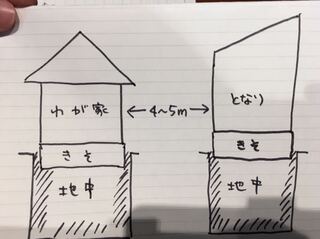 わが家
4〜5m
となり
きそ
きそ
地中
地中